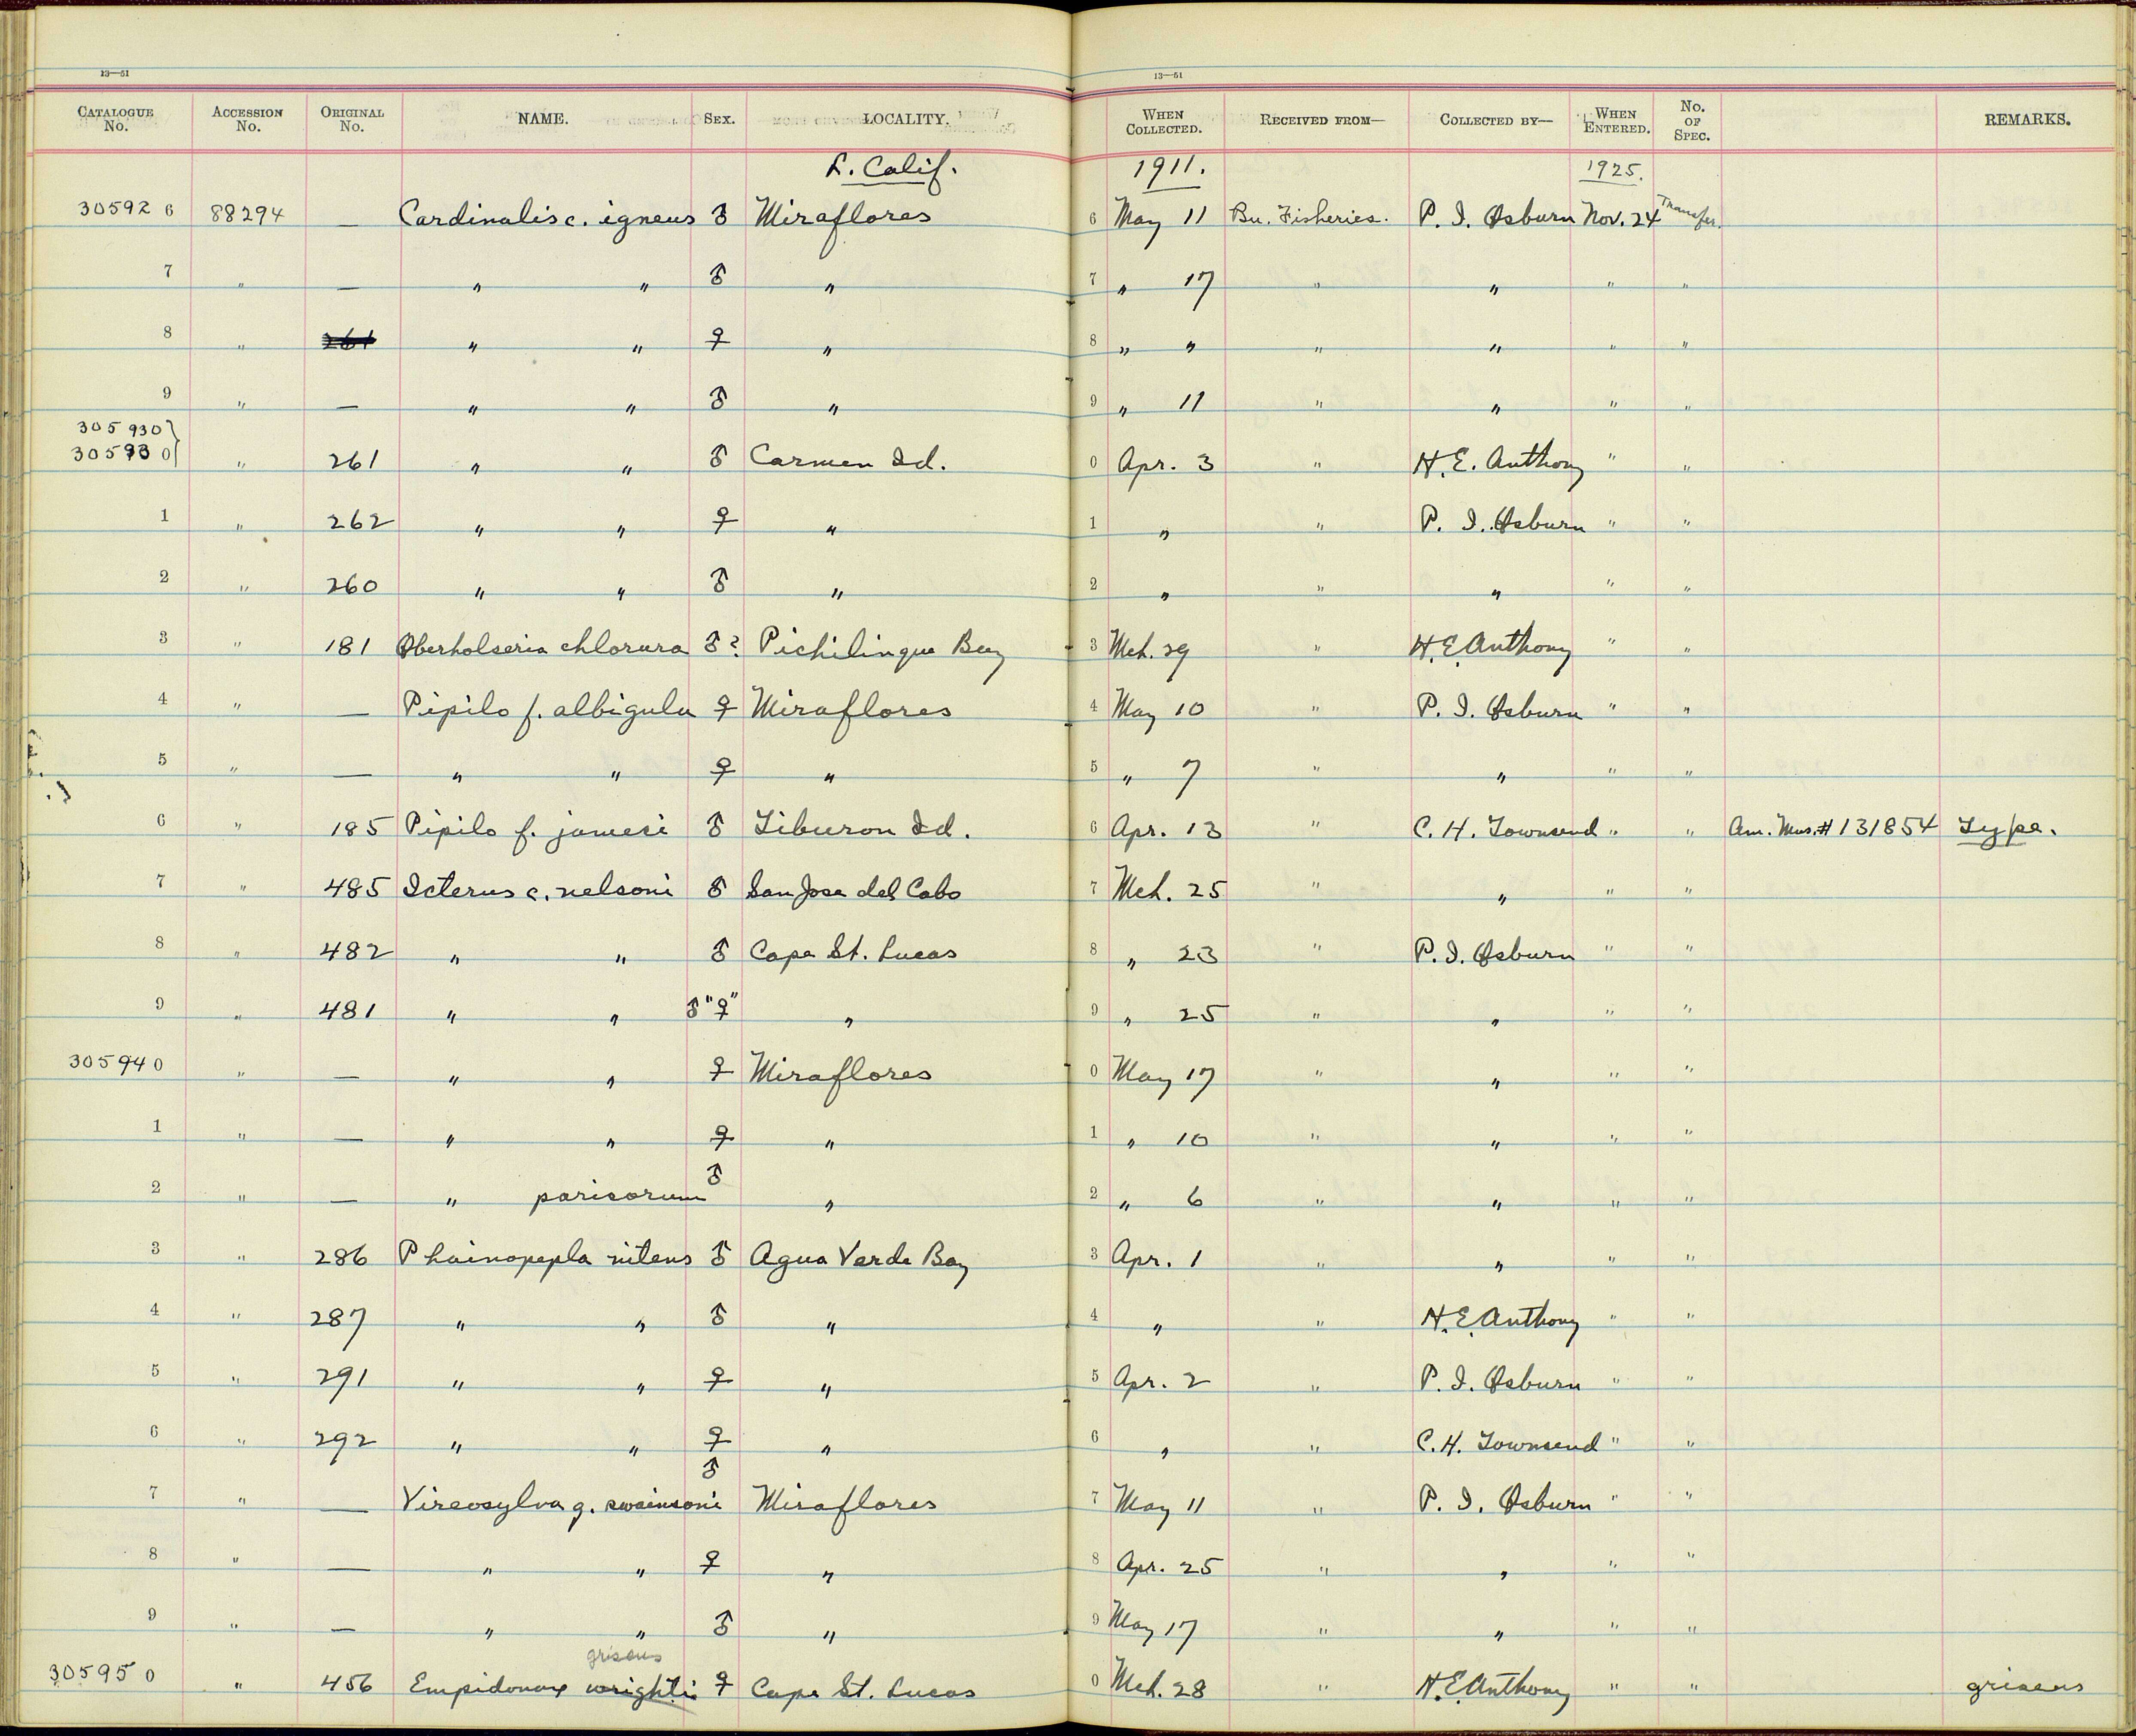 13—51 13—51
CATALOGUE No. ACCESSION No. ORIGINAL No. NAME. SEX. LOCALITY. WHEN COLLECTED. RECEIVED FROM— COLLECTED BY— WHEN ENTERED. No. OF SPEC. REMARKS.
L. Calif. 1911. 1925.
305926 88294 — Cardinalis c. igneus ♂ Miraflores 6 May 11 Bu. Fisheries. P. I. Osburn Nov. 24 Transfer.
7 " — " " ♂ " 7 " 17 " " " "
8 " 261 " " ♀ " 8 " " " " " "
9 " — " " ♂ " 9 " 11 " " " "
305930}
305930 " 261 " " ♂ Carmen Id. 0 Apr. 3 " H. E. Anthony " "
1 " 262 " " ♀ " 1 " " P. I. Osburn " "
2 " 260 " " ♂ " 2 " " " " "
3 " 181 Oberholseria chlorura ♂? Pichilinque Bay 3 Mch. 29 " H.E. Anthony " "
4 " — Pipilo f. albigula ♀ Miraflores 4 May 10 " P. I. Osburn " "
5 " — " " ♀ " 5 " 7 " " " "
6 " 185 Pipilo f. jamesi ♂ Tiburon Id. 6 Apr. 13 " C. H. Townsend " " Am. Mus. # 131854 Type.
7 " 485 Icterus c. nelsoni ♂ San Jose del Cabo 7 Mch. 25 " " " "
8 " 482 " " ♂ Cape St. Lucas 8 " 23 " P. I. Osburn " "
9 " 481 " " ♂ "♀" " 9 " 25 " " " "
305940 " — " " ♀ Miraflores 0 May 17 " " " "
1 " — " " ♀ " 1 " 10 " " " "
2 " — " parisorum ♂ " 2 " 6 " " " "
3 " 286 Phainopepla nitens ♂ Agua Verde Bay 3 Apr. 1 " " " "
4 " 287 " " ♂ " 4 " " H. E. Anthony " "
5 " 291 " " ♀ " 5 Apr. 2 " P. I. Osburn " "
6 " 292 " " ♀ " 6 " " C. H. Townsend " "
7 " — Vireosylva g. swainsoni ♂ Miraflores 7 May 11 " P. I. Osburn " "
8 " — " " ♀ " 8 Apr. 25 " " " "
9 " — " " ♂ " 9 May 17 " " " "
griseus
305950 " 456 Empidonax wrighti ♀ Cape St. Lucas 0 Mch. 28 " H. E. Anthony " " griseus